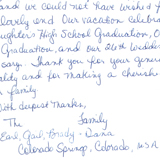 and we could not have wished f
clearly end. Our vacation celebra
ughter's High School Graduation, O
Graduation, and our 20th Weddin
sary. Thank you for your gener
ality and for making a cherishe
r family.
With deepest thanks,
The Family
Earl, Gail, Brady & Dana
Colorado Springs, Colorado, USA